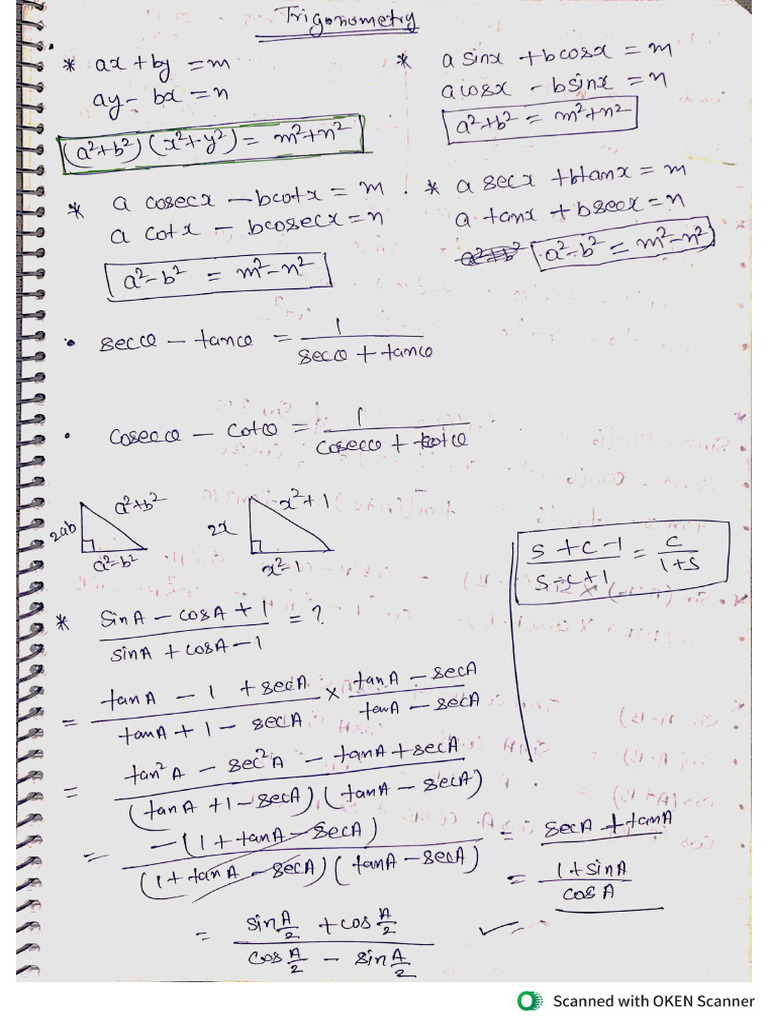 Trigonometry
* ax + by = m
ay - bx = n
(a²+b²) (x²+y²) = m²+n²
* a sinx + b cosx = m
a cosx - b sinx = n
a²+b² = m²+n²
* a cosecx - b cotx = m
a cotx - b cosecx = n
a²-b² = m²-n²
* a secx + b tanx = m
a tanx + b secx = n
a²+b² a²-b² = m²-n²
• secθ - tanθ = 1/(secθ + tanθ)
• cosecθ - cotθ = 1/(cosecθ + cotθ)
2ab a²+b² a²-b²
2x x²+1 x²-1
(s + c - 1)/(s - c + 1) = c/(1+s)
* (sinA - cosA + 1)/(sinA + cosA - 1) = ?
= (tanA - 1 + secA)/(tanA + 1 - secA) × (tanA - secA)/(tanA - secA)
= (tan²A - sec²A - tanA + secA)/((tanA + 1 - secA)(tanA - secA))
= -(1 + tanA - secA)/((1 + tanA - secA)(tanA - secA)) = secA + tanA
= (1 + sinA)/cosA
= (sin A/2 + cos A/2)/(cos A/2 - sin A/2)
Scanned with OKEN Scanner